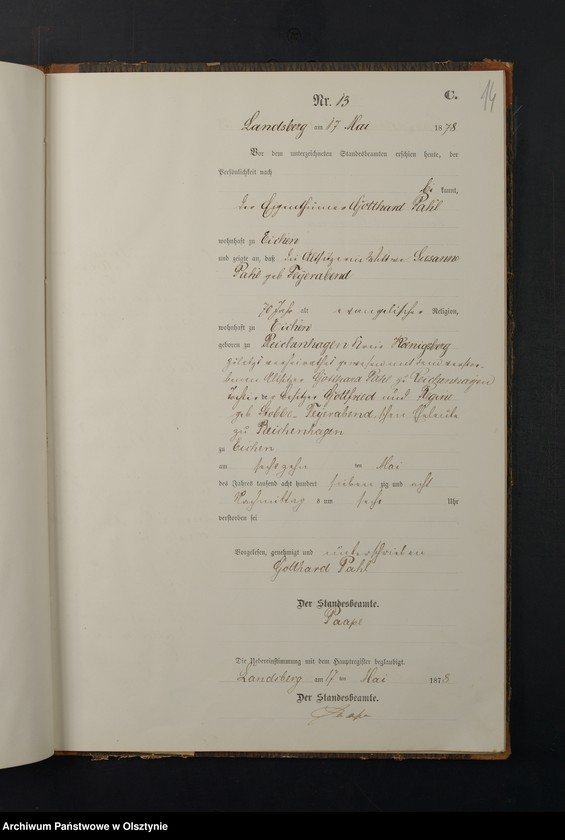 C.
14
Nr. 13
Landsberg am 17 Mai 1878
Vor dem unterzeichneten Standesbeamten erschien heute, der
Persönlichkeit nach
be kannt,
der Eigenthümer Gotthard Pahl
wohnhaft zu Eichen
und zeigte an, daß die Altsitzerin Wittwe Susanne
Pahl geb Feyerabend
70 Jahr alt evangelischer Religion,
wohnhaft zu Eichen
geboren zu Reichenhagen Kreis Koenigsberg
zuletzt verheirathet gewesen mit dem verstor-
benen Altsitzer Gotthard Pahl zu Reichenhagen
Tochter der Besitzer Gottfried und
geb Stobbe- Feyerabend.schen Eheleute
zu Reichenhagen
zu Eichen
am sechszehn ten Mai
des Jahres tausend acht hundert sieben zig und acht
Nachmittag s um sechs Uhr
verstorben sei
Vorgelesen, genehmigt und unterschrieben
Gotthard Pahl
Der Standesbeamte.
Paape
Die Uebereinstimmung mit dem Hauptregister beglaubigt.
Landsberg am 17 ten Mai 1878
Der Standesbeamte.
Paape
Archiwum Państwowe w Olsztynie